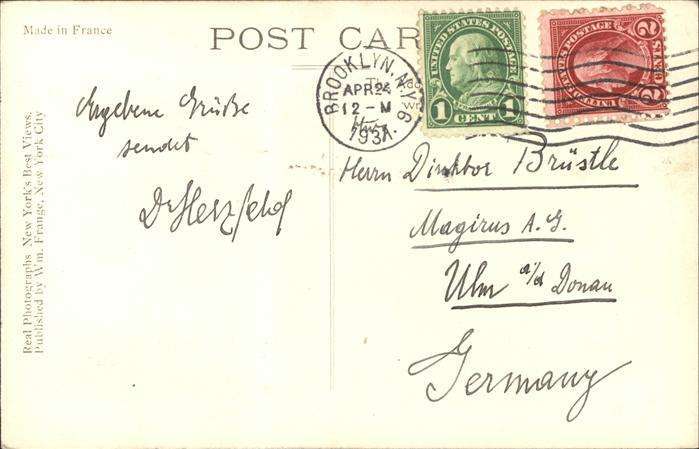 Made in France
POST CAR
UNITED STATES POSTAGE
1 CENT 1
2 CENTS 2
BROOKLYN, N.Y.
APR 24
12-M
193
Ergebene Grüße
sendet
Dr Herzfeld
Herrn Direktor Brüstle
Magirus A.G.
Ulm a/d Donau
Germany
Real Photographs New York's Best Views.
Published by Wm. Frange, New York City